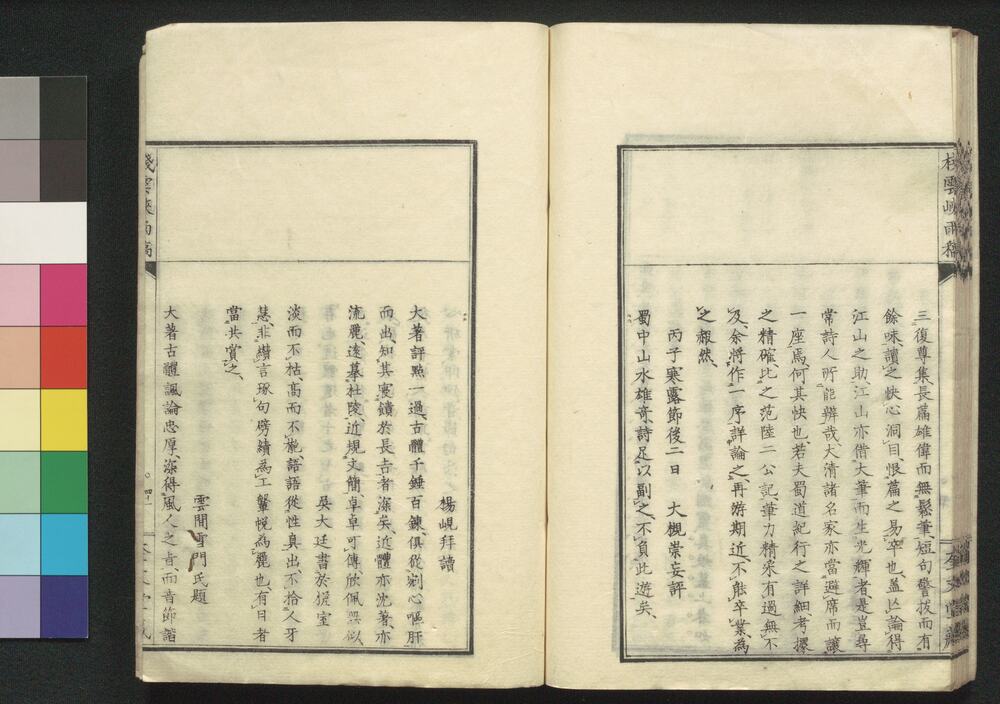 桟雲峽雨稿
三復尊集長篇雄偉而無鬆筆短句警拔而有
餘味讀之快心洞目恨篇之易卒也盖亡論得
江山之助江山亦借大筆而生光輝者是豈尋
常詩人所能辨哉大清諸名家亦當避席而讓
一座焉何其快也若夫蜀道紀行之詳細考據
之精確比之范陸二公記筆力精采有過無不
及余將作一序詳論之再游期近不能卒業為
之赧然
丙子寒露節後二日 大槻崇妄評
蜀中山水雄奇詩足以副之不負此遊矣
楊峴拜讀
大著評點一過古體千錘百鍊俱從剜心嘔肝
而出知其寖饋於長吉者深矣近體亦沈著亦
流麗遠摹杜陵近規文簡卓卓可傳欣佩無似
吳大廷書於猨室
淡而不枯高而不槬語語從性真出不拾人牙
慧非繢言琢句劈績為工鞶帨為麗也有目者
當共賞之
雲間雪門氏題
大著古體諷論忠厚深得風人之旨而音節諧
桟雲峽雨稿
四一